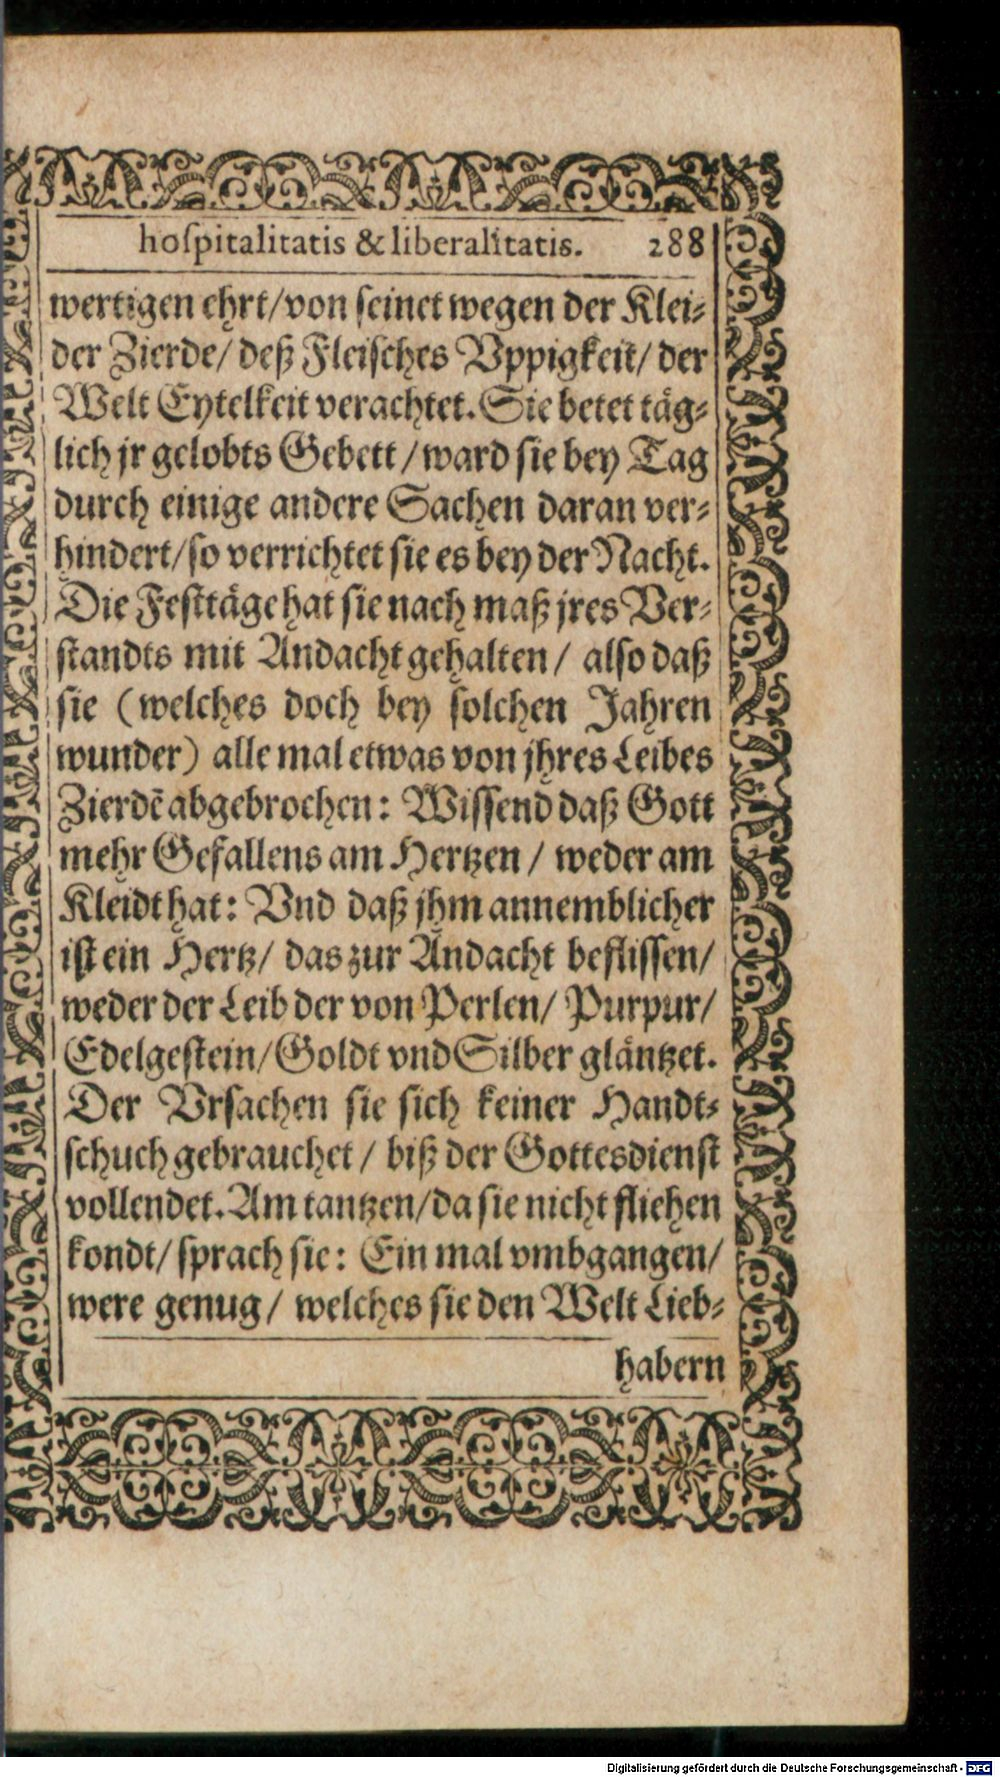 hoſpitalitatis & liberalitatis. 288
wertigen ehrt/von ſeinet wegen der Klei-
der Zierde/ deß Fleiſches Vppigkeit/ der
Welt Eytelkeit verachtet. Sie betet täg-
lich jr gelobts Gebett / ward ſie bey Tag
durch einige andere Sachen daran ver-
hindert/ſo verrichtet ſie es bey der Nacht.
Die Feſttäge hat ſie nach maß jres Ver-
ſtandts mit Andacht gehalten / alſo daß
ſie (welches doch bey ſolchen Jahren
wunder) alle mal etwas von jhres Leibes
Zierdē abgebrochen: Wiſſend daß Gott
mehr Gefallens am Hertzen / weder am
Kleidt hat: Vnd daß jhm annemblicher
iſt ein Hertz/ das zur Andacht befliſſen/
weder der Leib der von Perlen/ Purpur/
Edelgeſtein/Goldt vnd Silber gläntzet.
Der Vrſachen ſie ſich keiner Handt-
ſchuch gebrauchet / biß der Gottesdienſt
vollendet. Am tantzen/da ſie nicht fliehen
kondt/ ſprach ſie: Ein mal vmbgangen/
were genug / welches ſie den Welt Lieb-
habern
Digitalisierung gefördert durch die Deutsche Forschungsgemeinschaft - DFG